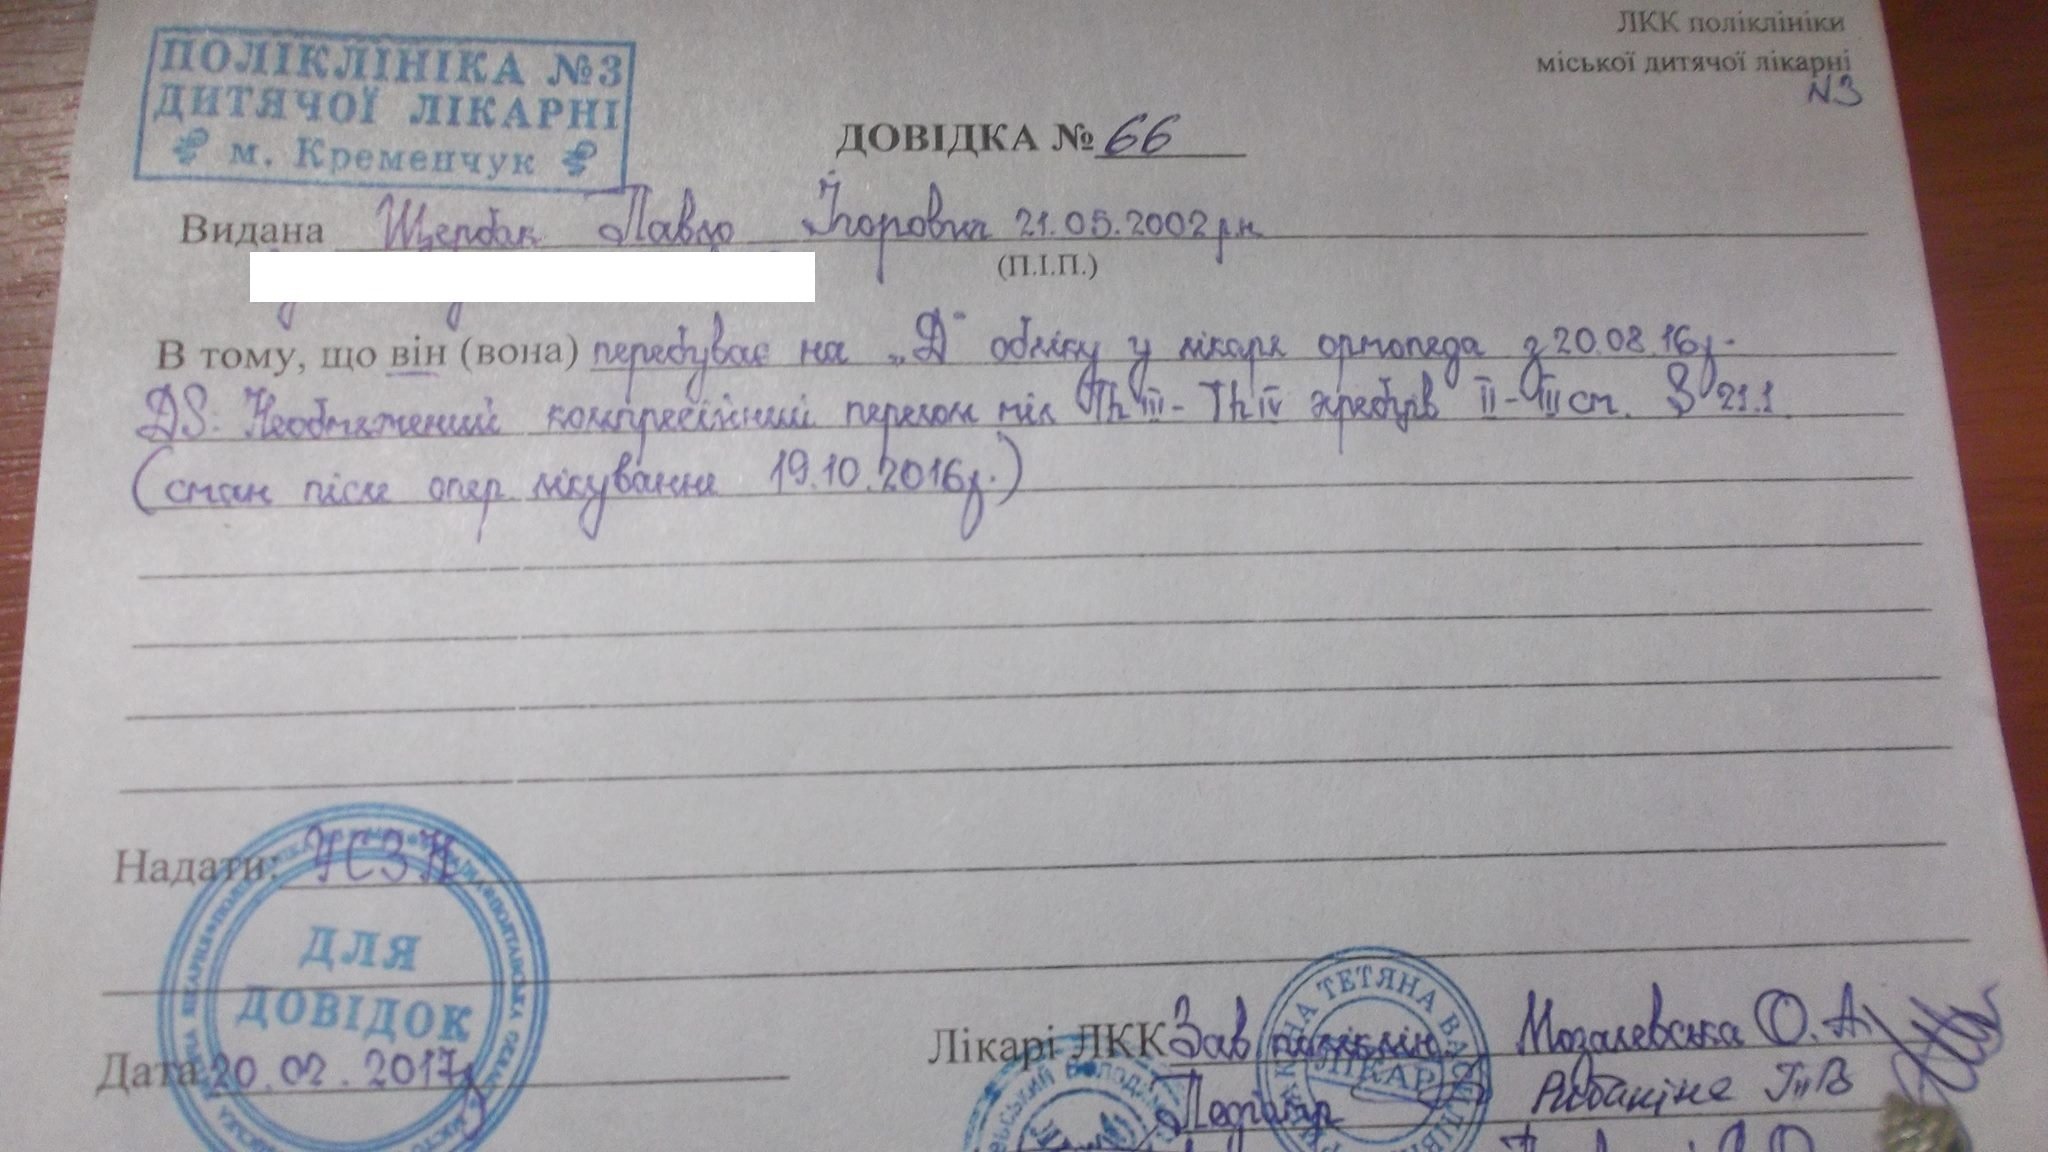 ЛКК поліклініки
міської дитячої лікарні
N3
ПОЛІКЛІНІКА №3
ДИТЯЧОЇ ЛІКАРНІ
м. Кременчук
ДОВІДКА № 66
Видана Щербак Павло Ігорович 21.05.2002 р.н.
(П.І.П.)
В тому, що він (вона) перебуває на „Д" обліку у лікаря ортопеда з 20.08.16р.
DS: компресійний перелом тіл Th III - Th IV хребців II - III ст. S 21.1
(стан після опер лікування 19.10.2016р.)
Надати: УСЗН
ДЛЯ
ДОВІДОК
Дата 20.02.2017р
Лікарі ЛКК Зав поліклін. Мозалевська О.А.
ТЕТЯНА
ЛІКАР
Педіатр